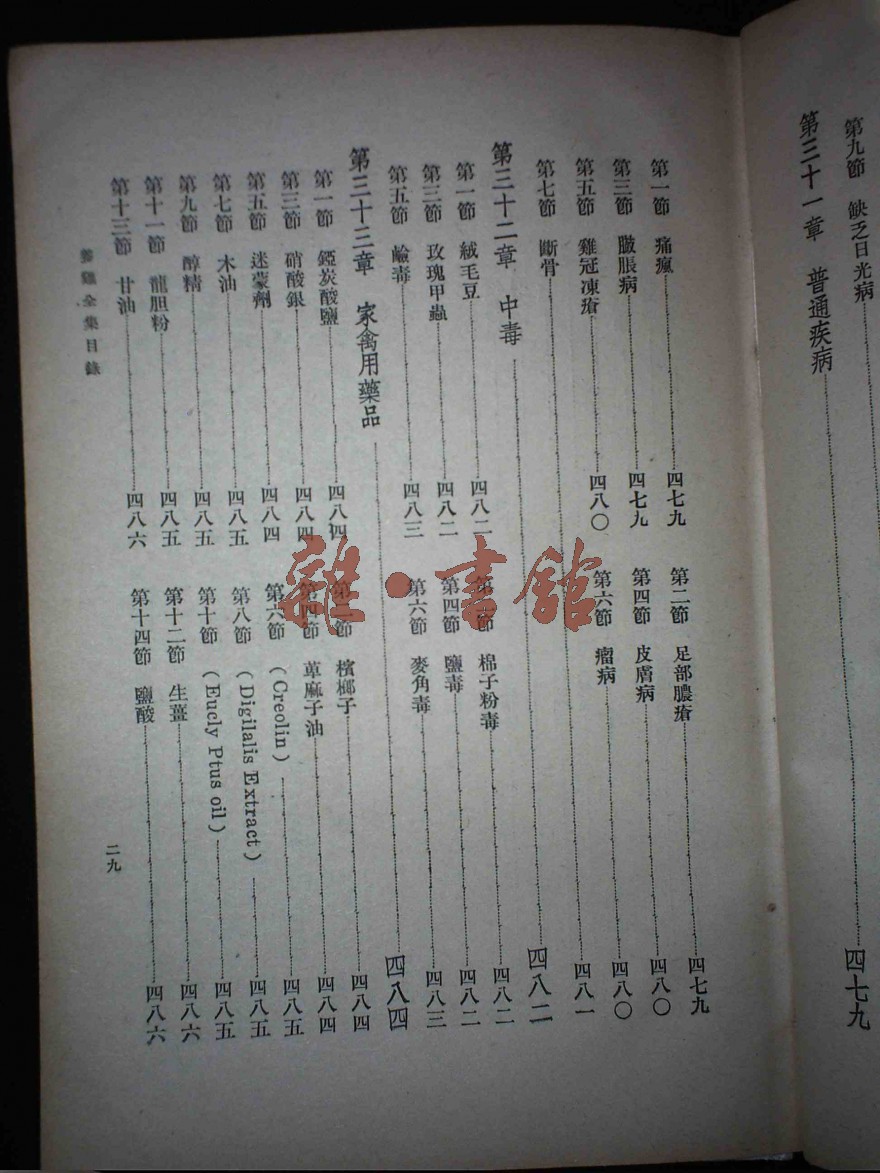 第九節 缺乏日光病
第三十一章 普通疾病 四七九
第一節 痛瘋 四七九 第二節 足部膿瘡 四七九
第三節 臌脹病 四七九 第四節 皮膚病 四八〇
第五節 雞冠凍瘡 四八〇 第六節 瘤病 四八〇
第七節 斷骨 四八一
第三十二章 中毒 四八二
第一節 絨毛豆 四八二 第二節 棉子粉毒 四八二
第三節 玫瑰甲蟲 四八二 第四節 鹽毒 四八二
第五節 鹼毒 四八三 第六節 麥角毒 四八三
第三十三章 家禽用藥品 四八四
第一節 錏炭酸鹽 四八四 第二節 檳榔子 四八四
第三節 硝酸銀 四八四 第四節 萆麻子油 四八四
第五節 迷蒙劑 四八四 第六節 (Creolin) 四八五
第七節 木油 四八五 第八節 (Digilalis Extract) 四八五
第九節 醇精 四八五 第十節 (Eucly Ptus oil) 四八五
第十一節 龍胆粉 四八五 第十二節 生薑 四八六
第十三節 甘油 四八六 第十四節 鹽酸 四八六
養雞全集目錄
二九
雜·書館